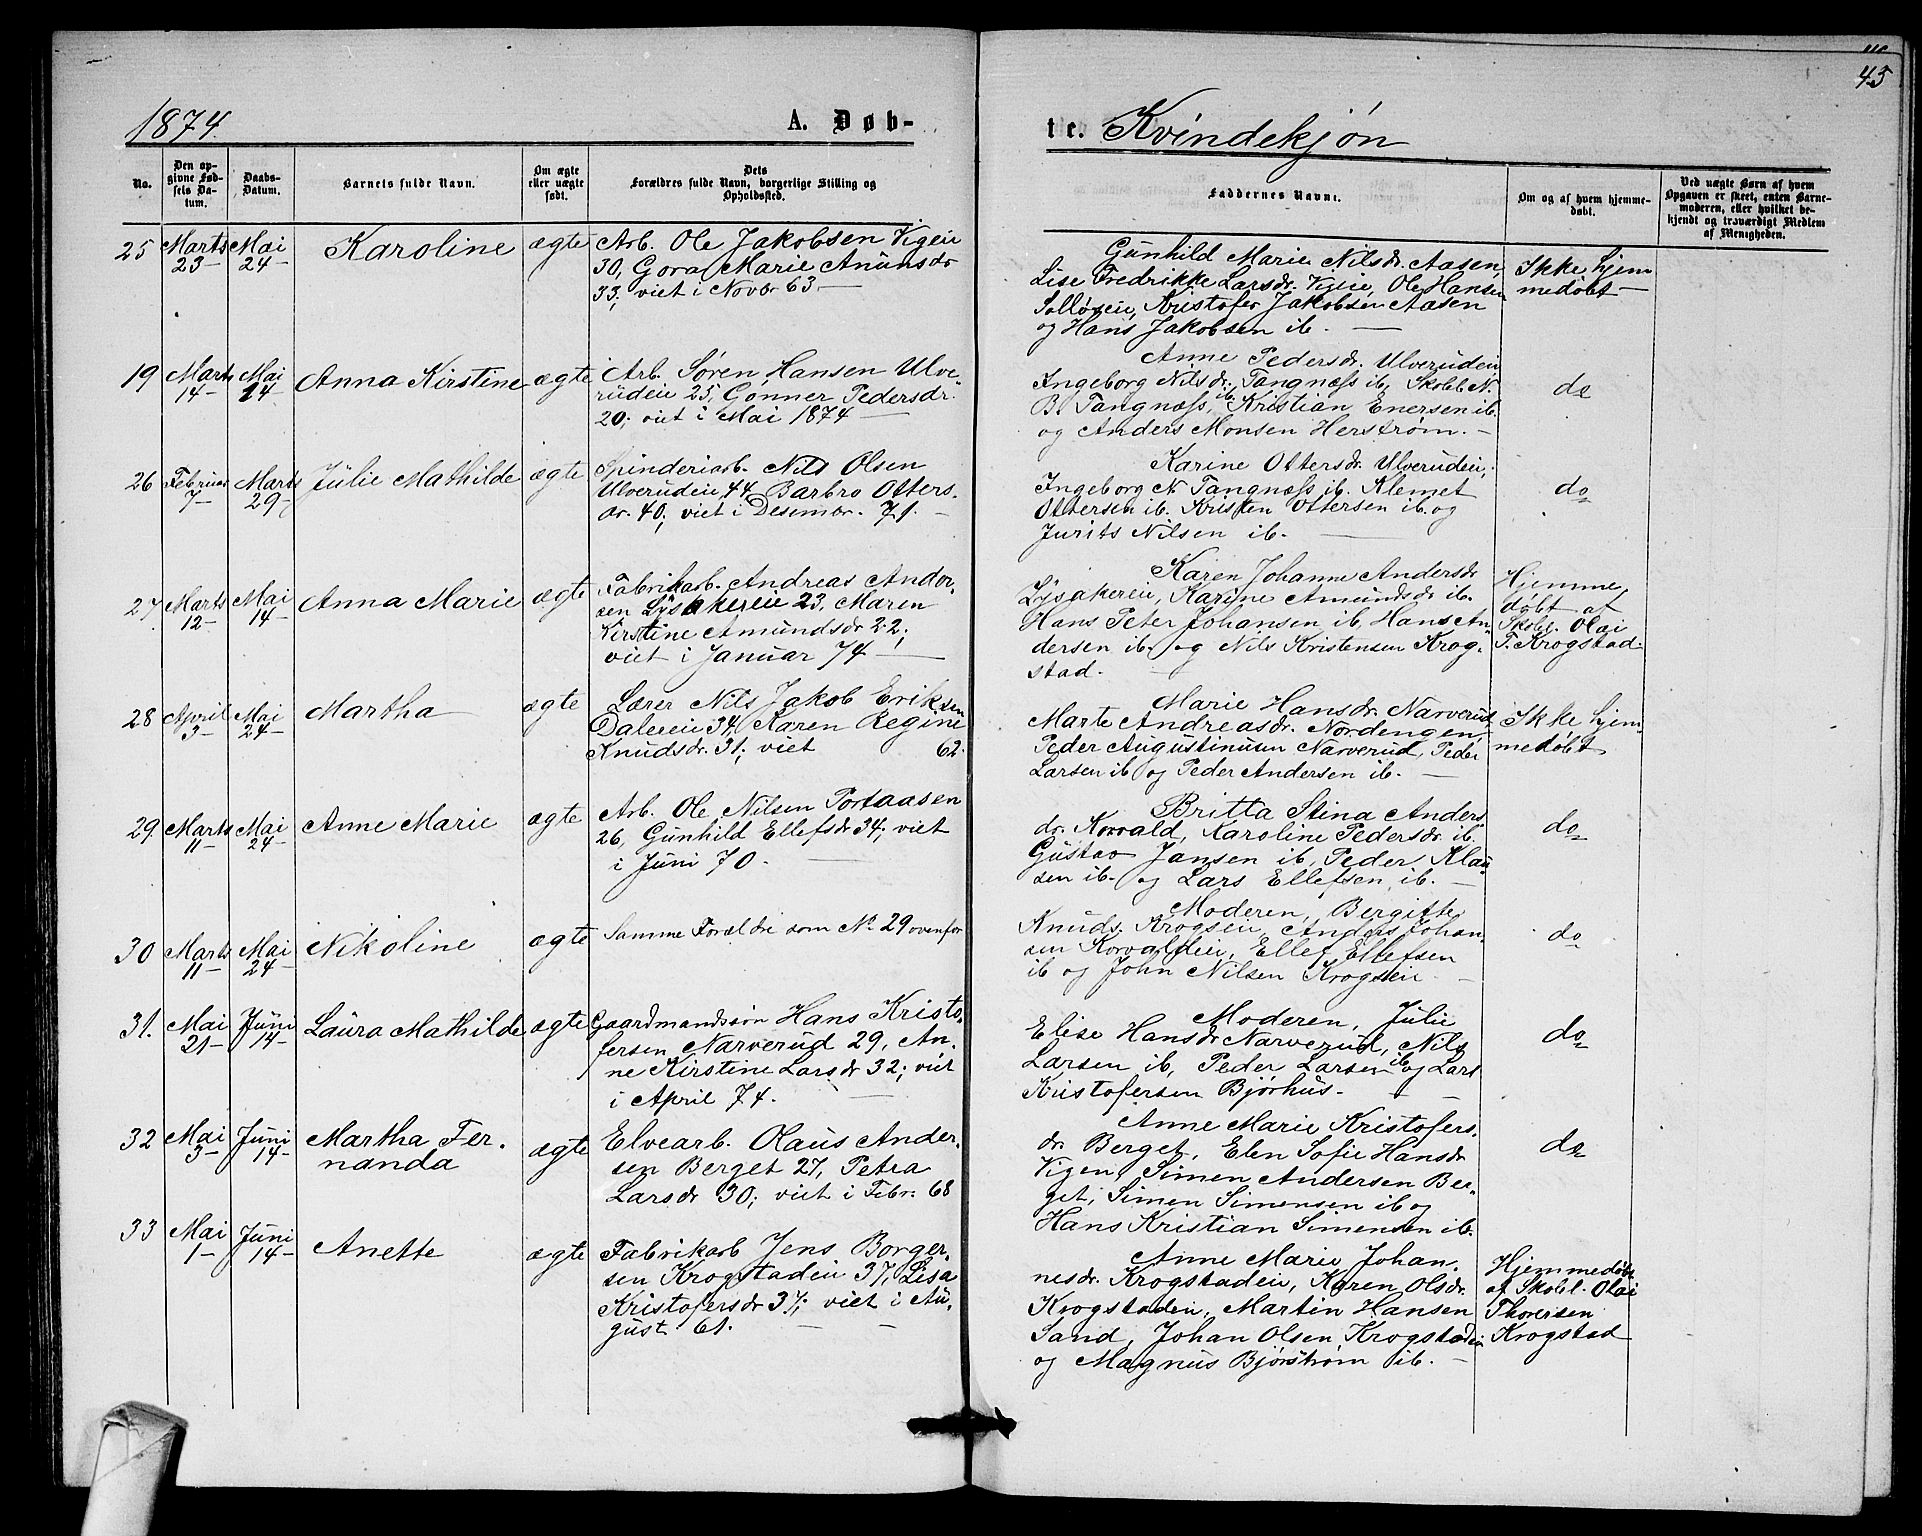 45
1874
A. Døb-
te. Kvindekjøn
No.
Den op-
givne Fød-
sels Da-
tum.
Daabs-
Datum.
Barnets fulde Navn.
Om ægte
eller uægte
født.
Dets
Forældres fulde Navn, borgerlige Stilling og
Opholdssted.
Faddernes Navne.
Om og af hvem hjemme-
døbt.
Ved uægte Børn af hvem
Opgaven er skeet, enten Barne-
moderen, eller hvilket be-
kjendt og troværdigt Medlem
af Menigheden.
25 Marts 23 Mai 24 Karoline ægte
Arb. Ole Jakobsen Vigeie
30, Gora Marie Anunsdr
33; viet i Novbr 63.
Gunhild Marie Nilsdr. Aasen,
Lise Fredrikke Larsdr. Vigeie, Ole Hansen
Kristofer Jakobsen Aasen
og Hans Jakobsen ib.
Ikke hjem
medøbt
19 Marts 14 Mai 24 Anna Kirstine ægte
Arb. Søren Hansen Ulve-
rudeie 25, Gonner Pedersdr.
20; viet i Mai 1874
Anne Pedersdr. Ulverudeie
Ingeborg Nilsdr. Tangnæss ib, Skoll. N.
B. Tangnæss ib, Kristian Enersen ib.
og Anders Monsen Herstrøm.
do
26 Februar 7 Marts 29 Julie Mathilde ægte
Spinderiarb. Nils Olsen
Ulverudeie 44, Barbro Otters-
dr. 40; viet i Desembr. 71.
Karine Ottersdr. Ulverudeie,
Ingeborg N. Tangnæss ib. Klemet
Ottersen ib. Kristen Ottersen ib. og
Jurits Nilsen ib.
do
27 Marts 12 Mai 14 Anna Marie ægte
Fabrikarb. Andreas Ander-
sen Lysakereie 23, Maren
Kirstine Amundsdr 22;
viet i Januar 74
Karen Johanne Andersdr
Lysakereie, Karine Amundsdr ib.
Hans Peter Johansen ib, Hans An-
dersen ib. og Nils Kristensen Krog-
stad.
Hjemme
døbt af
Skoll. Olai
T. Krogstad
28 April 3 Mai 24 Martha ægte
Lærer Nils Jakob Eriksen
Daleeie 34, Karen Regine
Knudsdr. 31; viet 62.
Marie Hansdr. Narverud
Marte Andreasdr. Nordengen,
Peder Augustinusen Narverud, Peder
Larsen ib og Peder Andersen ib.
Ikke hjem-
medøbt
29 Marts 11 Mai 24 Anne Marie ægte
Arb. Ole Nilsen Portaasen
26, Gunhild Ellefsdr 34; viet
i Juni 70.
Britta Stina Anders
dr. Korvald, Karoline Pedersdr. ib.
Gustav Jansen ib, Peder Klau-
sen ib. og Lars Ellefsen ib.
do
30 Marts 11 Mai 24 Nikoline ægte
Samme Forældre som No 29 ovenfor
Moderen, Bergitte
Knuds. Krogseie, Anders Johan-
sen Korvaldeie, Ellef Ellefsen
ib og John Nilsen Krogseie
do
31. Mai 21 Juni 14 Laura Mathilde ægte
Gaardmandssøn Hans Kristo-
fersen Narverud 29, An-
ne Kirstine Larsdr 32; viet
i April 74.
Moderen, Julie
Elise Hansdr Narverud, Nils
Larsen ib, Peder Larsen ib og Lars
Kristofersen Bjørhus.
do
32 Mai 3 Juni 14 Martha Fer-
nanda ægte
Elvearb. Olaus Ander-
sen Berget 27, Petra
Larsdr 30; viet i Febr. 68
Anne Marie Kristofers-
dr. Berget, Elen Sofie Hansdr
Vigen, Simen Andersen Ber-
get, Simen Simensen ib og
Hans Kristian Simensen ib.
do
33 Mai 1 Juni 14 Anette ægte
Fabrikarb Jens Borger-
sen Krogstadeie 37, Lisa
Kristofersdr 37; viet i Au-
gust 61.
Anne Marie Johan-
nesdr. Krogstadeie, Karen Olsdr.
Krogstadeie, Martin Hansen
Sand, Johan Olsen Krogstadeie
og Magnus Bjørstrøm ib.
Hjemmedøbt
af Skoll. Olai
Thoresen
Krogstad